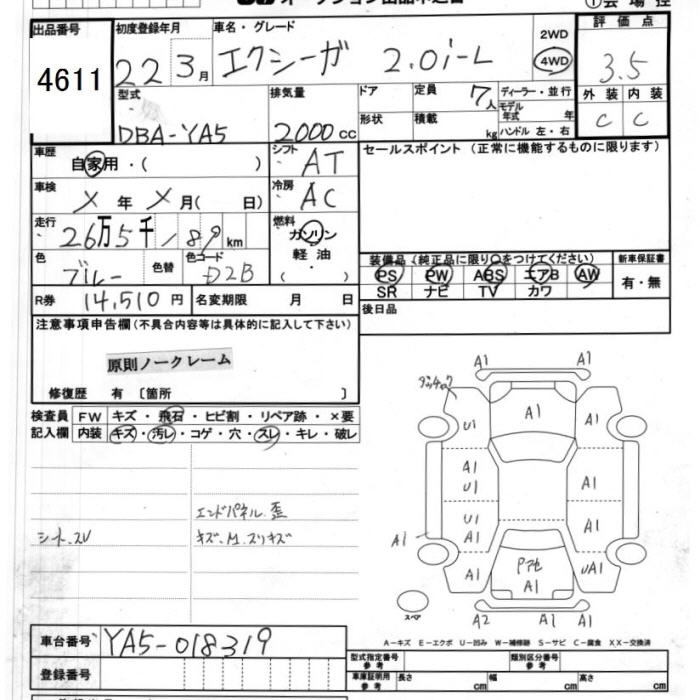 出品番号
4611
初度登録年月
22 3月
車名・グレード
エクシーガ 2.0i-L
2WD
4WD
評価点
3.5
外装 内装
C C
型式
DBA-YA5
排気量
2000cc
ドア
形状
定員 7人
積載 kg
ディーラー・並行
モデル年式 年
ハンドル 左・右
車歴
自家用・( )
シフト AT
セールスポイント (正常に機能するものに限ります)
車検
X 年 X 月( 日)
冷房 AC
走行
26万5千189 km
燃料
ガソリン
軽油
( ・ )
色
ブルー
色替
色コード
D2B
装備品 (純正品に限り○をつけてください)
PS PW ABS エアB AW
SR ナビ TV カワ
新車保証書
有・無
R券 14,510円
名変期限 月 日
後日品
注意事項申告欄(不具合内容等は具体的に記入して下さい)
原則ノークレーム
修復歴 有 〔箇所 〕
検査員記入欄
FW キズ・飛石・ヒビ割・リペア跡・×要
内装 キズ・汚レ・コゲ・穴・スレ・キレ・破レ
エンドパネル歪
シートスレ
キズ、M、スリキズ
A1 A1
A1
U1
A1
A1
U1
A1
U1
A1
A1
A1
A1
A1
UA1
A1
A2 A1 A1
スペア
A-キズ E-エクボ U-凹み W-補修跡 S-サビ C-腐食 XX-交換済
車台番号 YA5-018319
登録番号
型式指定番号 参考
類別区分番号 参考
車庫証明用 参考
長さ cm 幅 cm 高さ cm